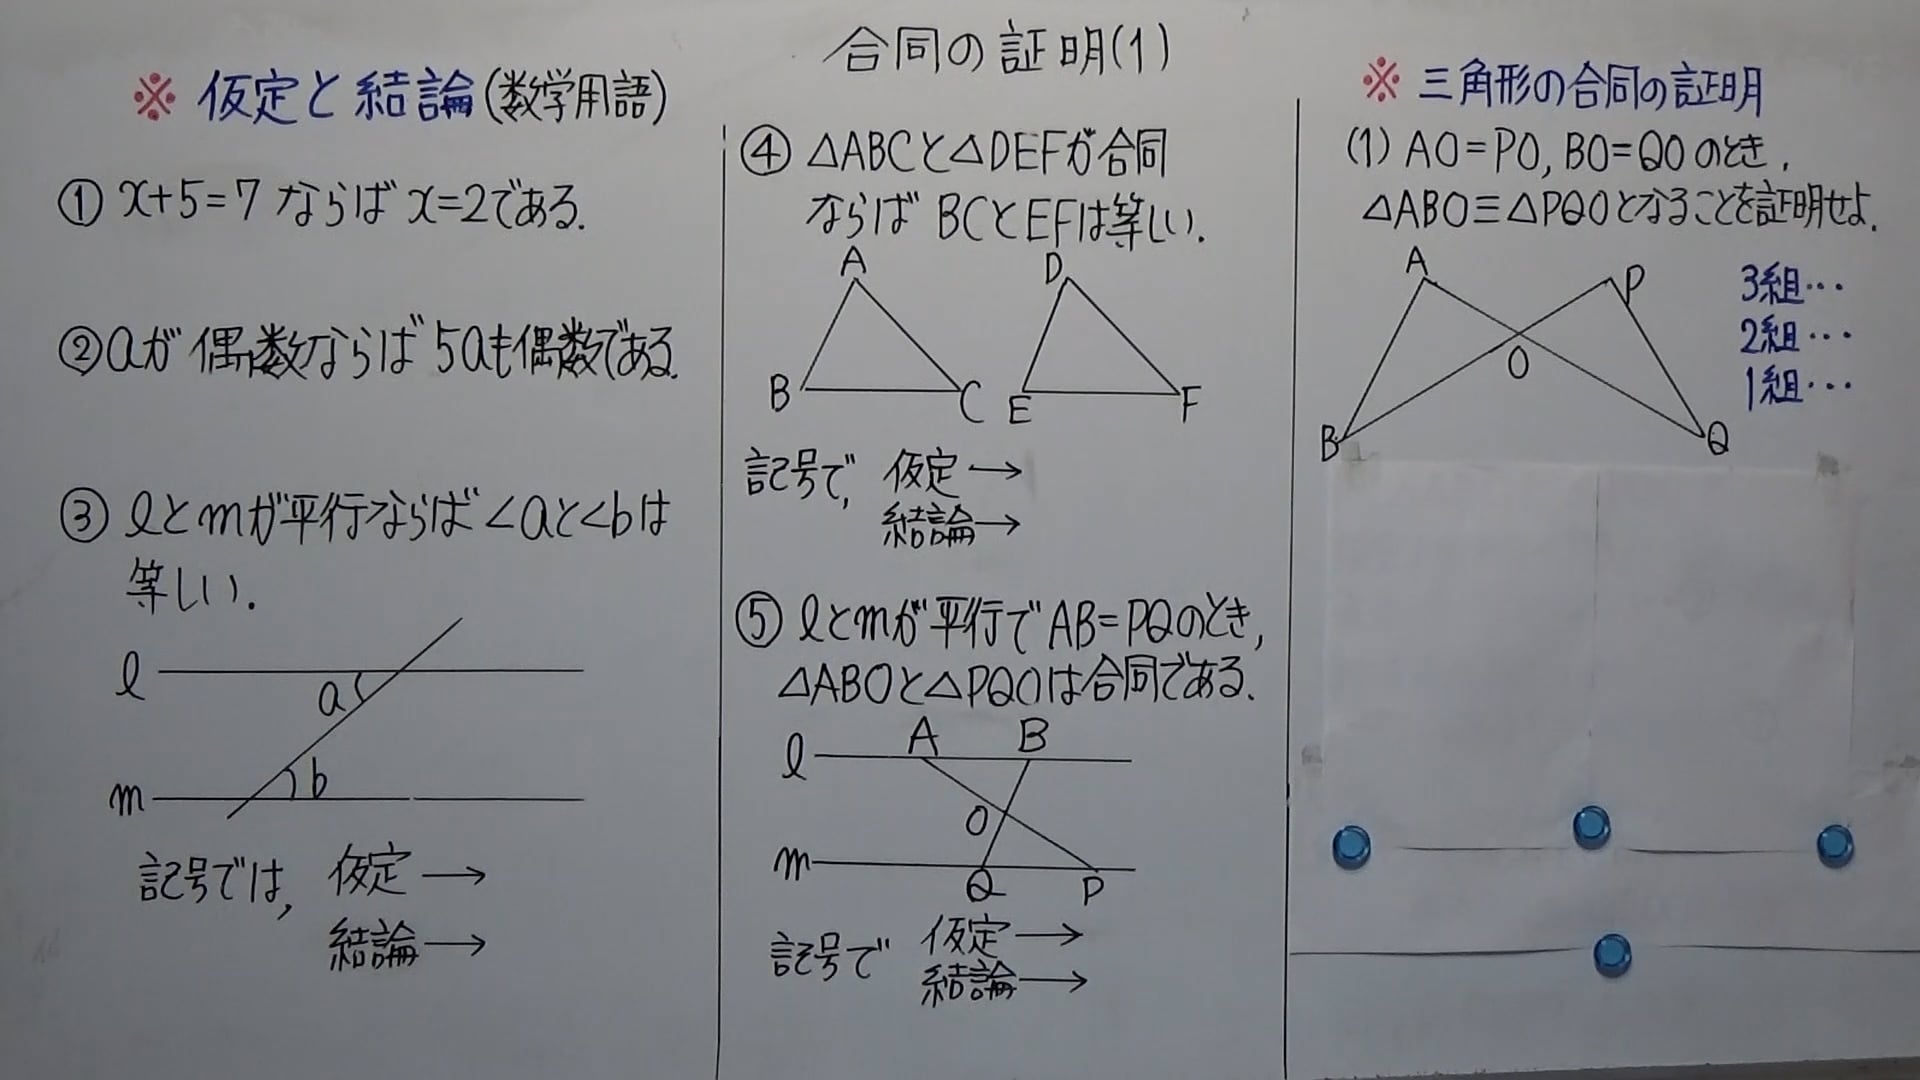 合同の証明(1)
※ 仮定と結論(数学用語)
① x+5=7 ならば x=2である.
② aが偶数ならば 5aも偶数である.
③ ℓとmが平行ならば ∠aと∠bは
等しい.
ℓ
a
b
m
記号では, 仮定→
結論→
④ △ABCと△DEFが合同
ならば BCとEFは等しい.
A D
B C E F
記号で, 仮定→
結論→
⑤ ℓとmが平行で AB=PQのとき,
△ABOと△PQOは合同である.
A B
ℓ
O
m
Q P
記号で 仮定→
結論→
※ 三角形の合同の証明
(1) AO=PO, BO=QO のとき,
△ABO≡△PQOとなることを証明せよ.
A P
O
B Q
3組…
2組…
1組…